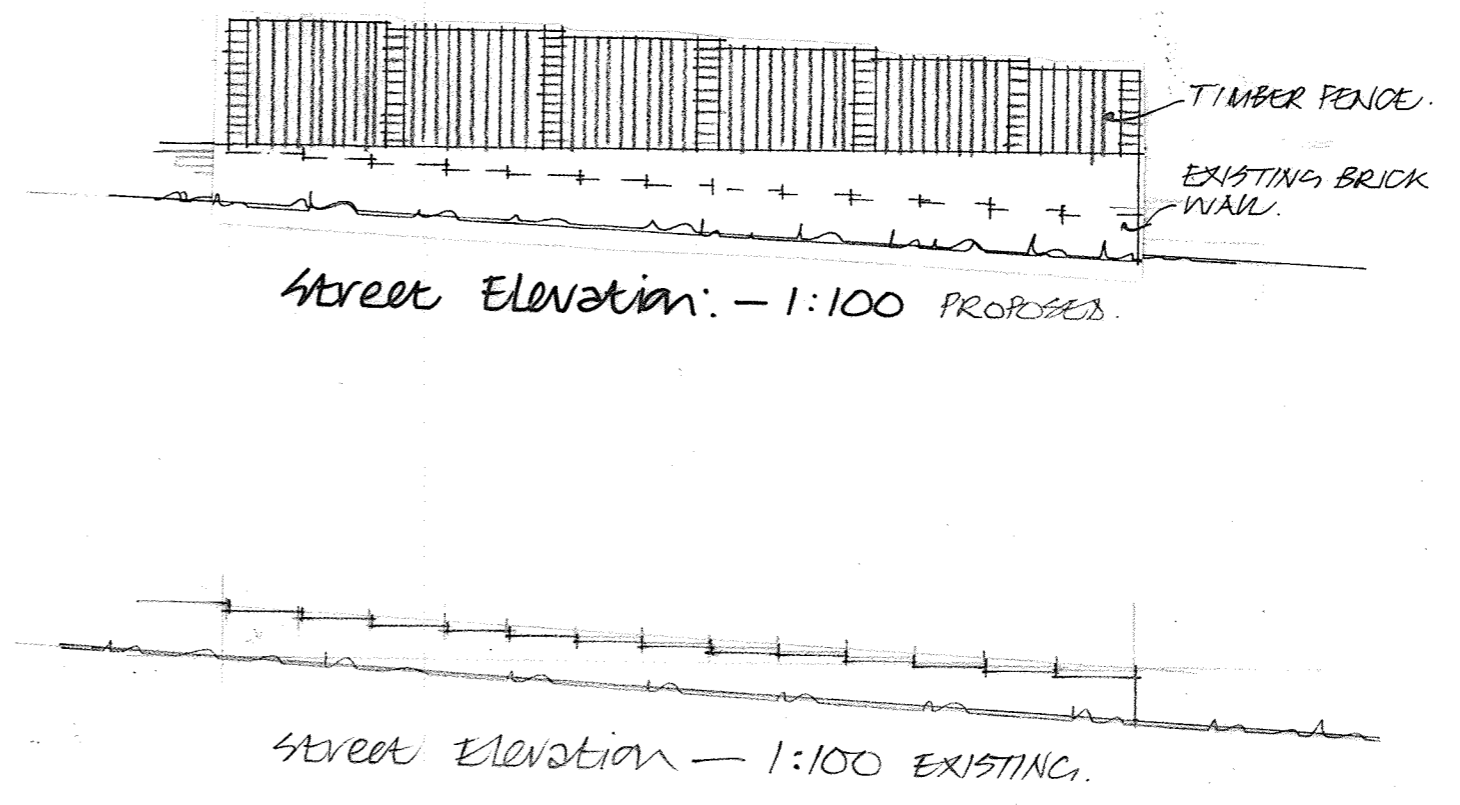 TIMBER FENCE.
EXISTING BRICK
WALL.
Street Elevation: - 1:100 PROPOSED.
Street Elevation - 1:100 EXISTING.